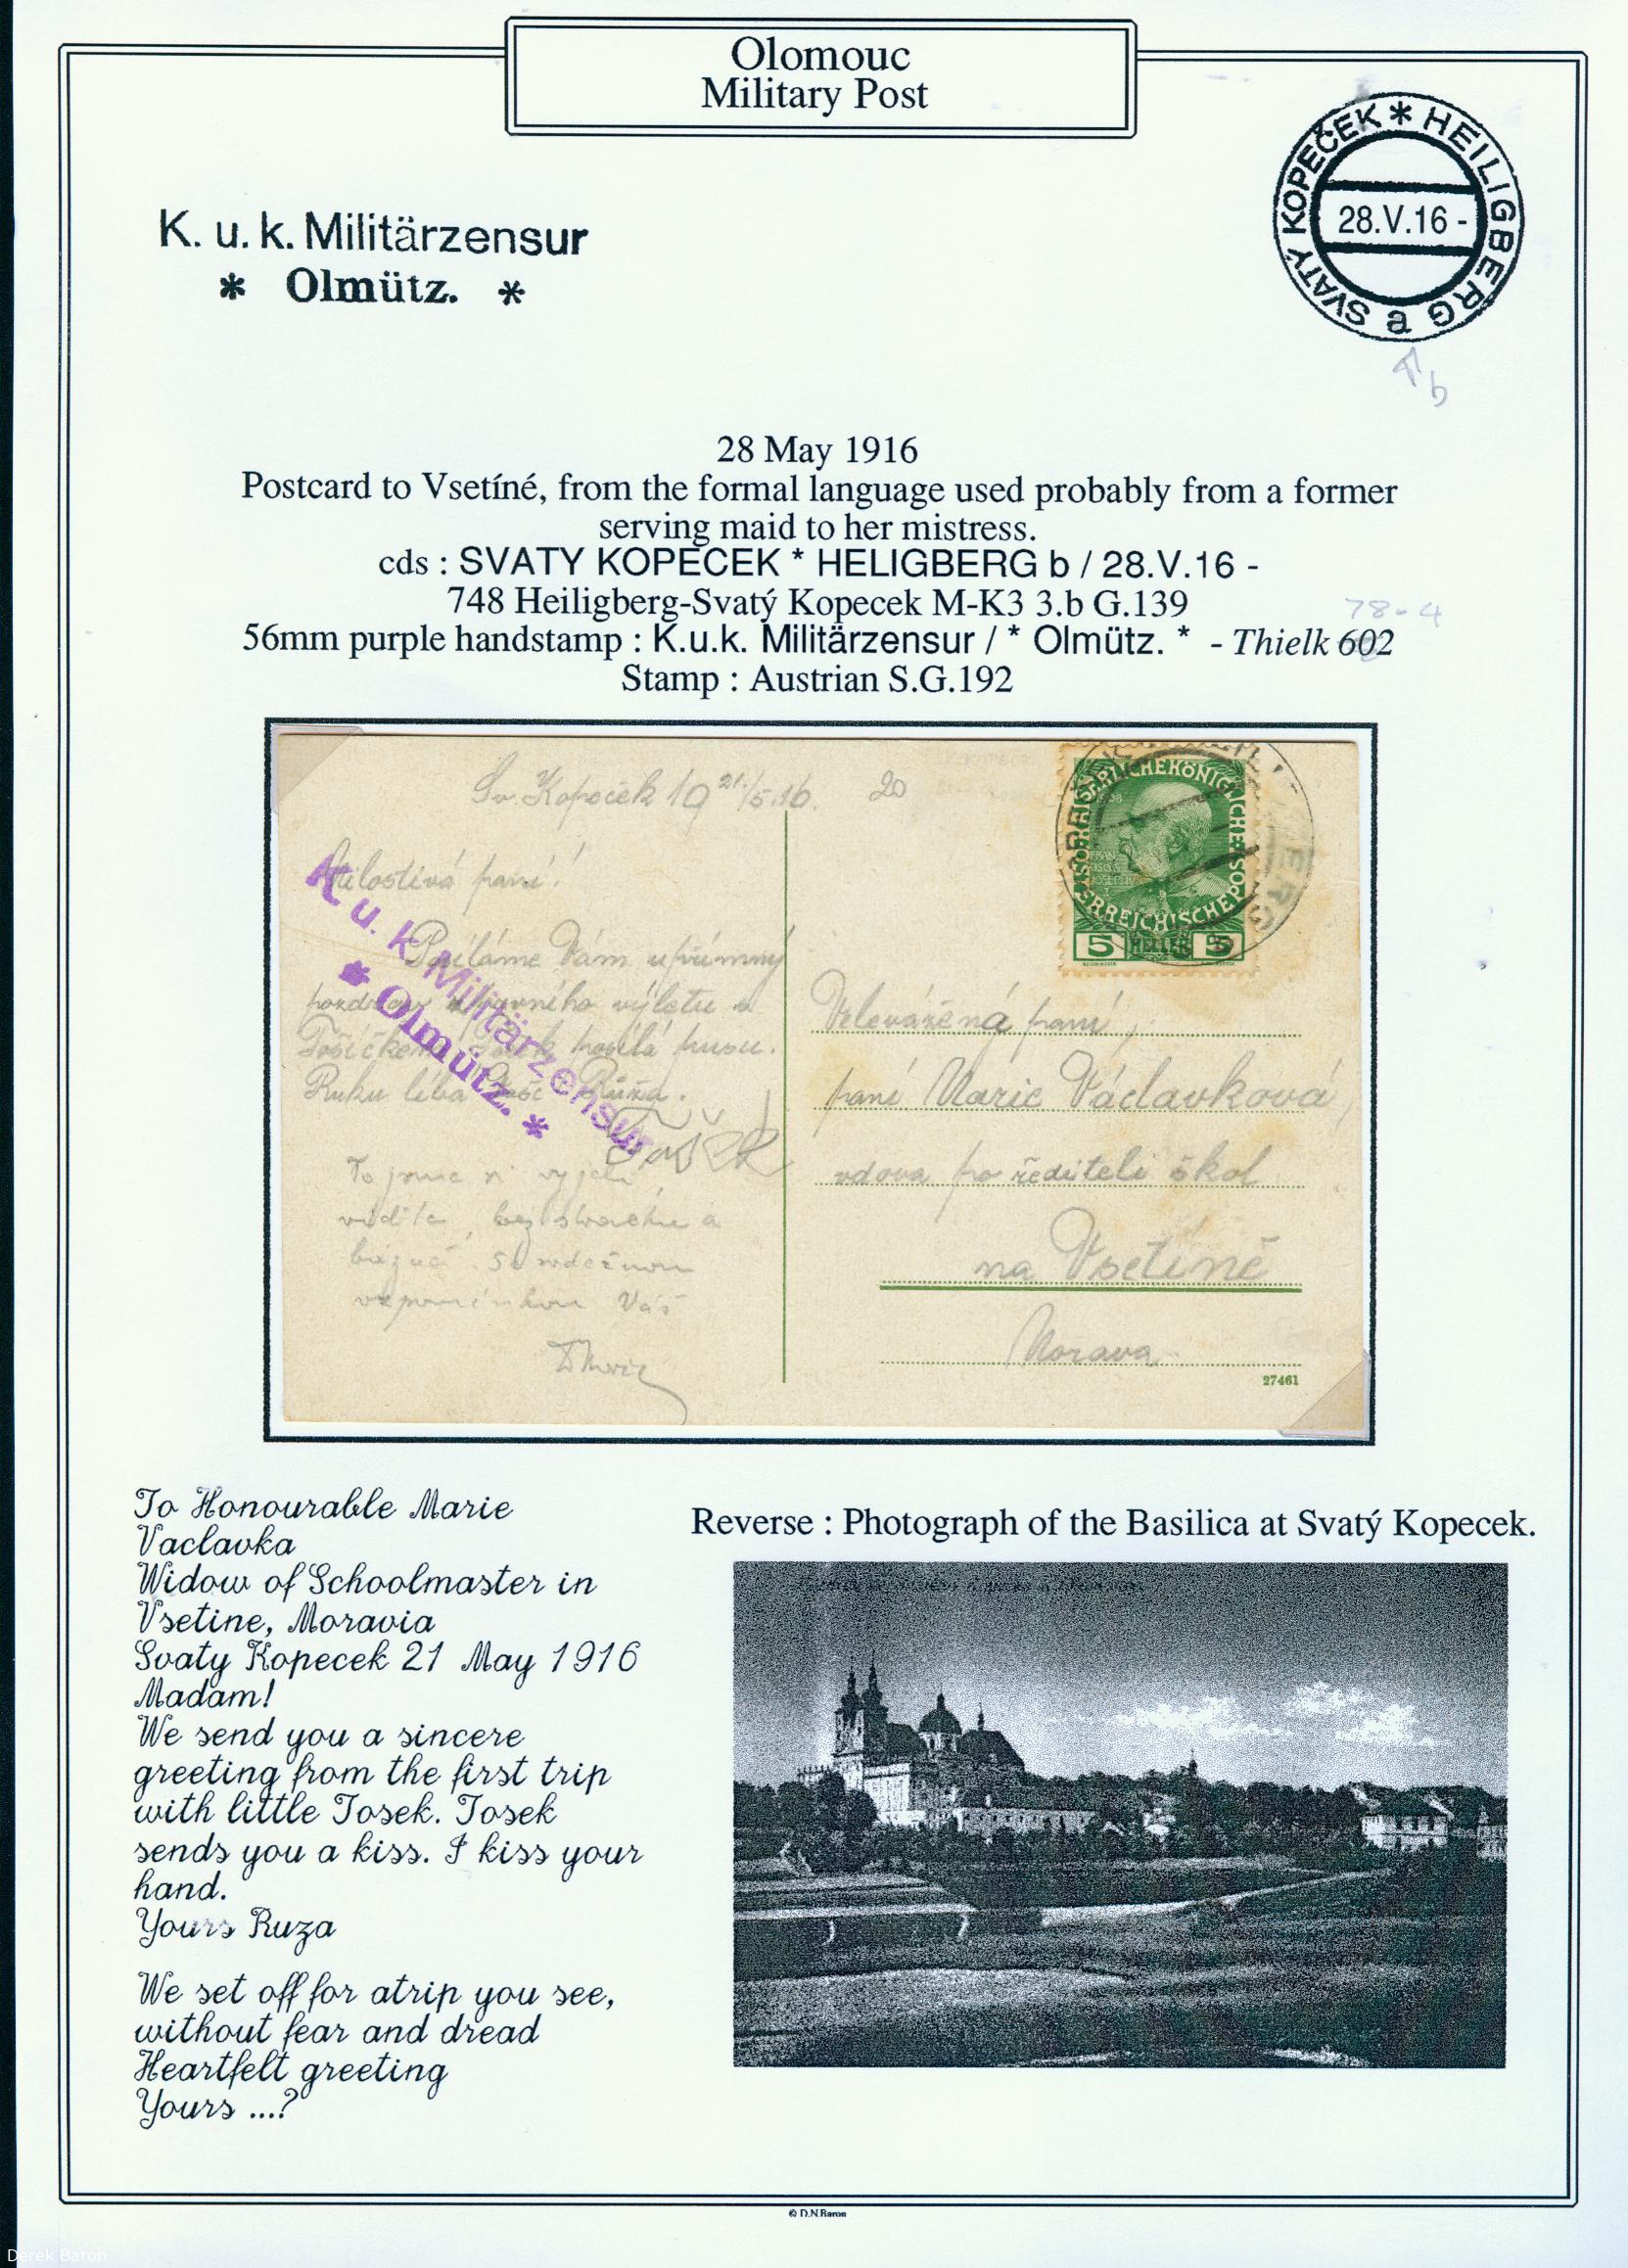 Olomouc
Military Post
K. u. k. Militärzensur
* Olmütz. *
SVATÝ KOPEČEK * HEILIGBERG a
28.V.16 -
b
28 May 1916
Postcard to Vsetíné, from the formal language used probably from a former
serving maid to her mistress.
cds : SVATY KOPECEK * HELIGBERG b / 28.V.16 -
748 Heiligberg-Svatý Kopecek M-K3 3.b G.139
78-4
56mm purple handstamp : K.u.k. Militärzensur / * Olmütz. * - Thielk 602
Stamp : Austrian S.G.192
Sv. Kopeček 19 21/5.16. 20
Milostivá paní!
Posíláme Vám upřímný
pozdrav z prvního výletu s
Tošíčkem. Tošek posílá pusu.
Ruku líbá Růža.
Tošek
To jsme si vyjeli
vidíte, bez strachu a
bázně. Se srdečnou
vzpomínkou Váš
K. u. k. Militärzensur
* Olmütz. *
5 HELLER 5
Velevážená paní,
paní Marie Václavková,
vdova po řediteli škol
na Vsetíně
Morava
27461
To Honourable Marie
Vaclavka
Widow of Schoolmaster in
Vsetine, Moravia
Svaty Kopecek 21 May 1916
Madam!
We send you a sincere
greeting from the first trip
with little Tosek. Tosek
sends you a kiss. I kiss your
hand.
Yours Ruza
We set off for atrip you see,
without fear and dread
Heartfelt greeting
Yours ...?
Reverse : Photograph of the Basilica at Svatý Kopecek.
© D.N.Baron
Derek Baron